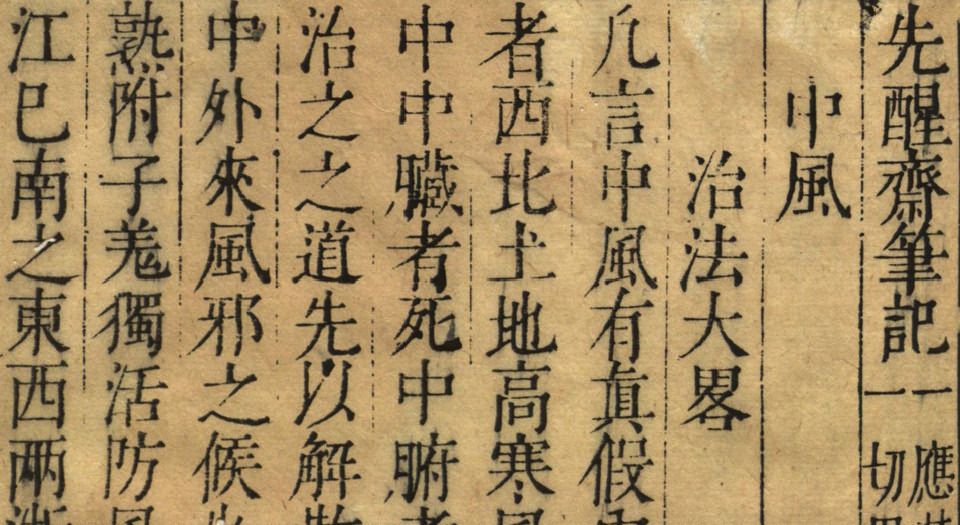 先醒齋筆記
一應
一切
中風
治法大畧
凡言中風有眞假
者西北土地高寒風
中中臓者死中腑者
治之之道先以解
中外來風邪之候
熟附子羗獨活防風
江巳南之東西兩